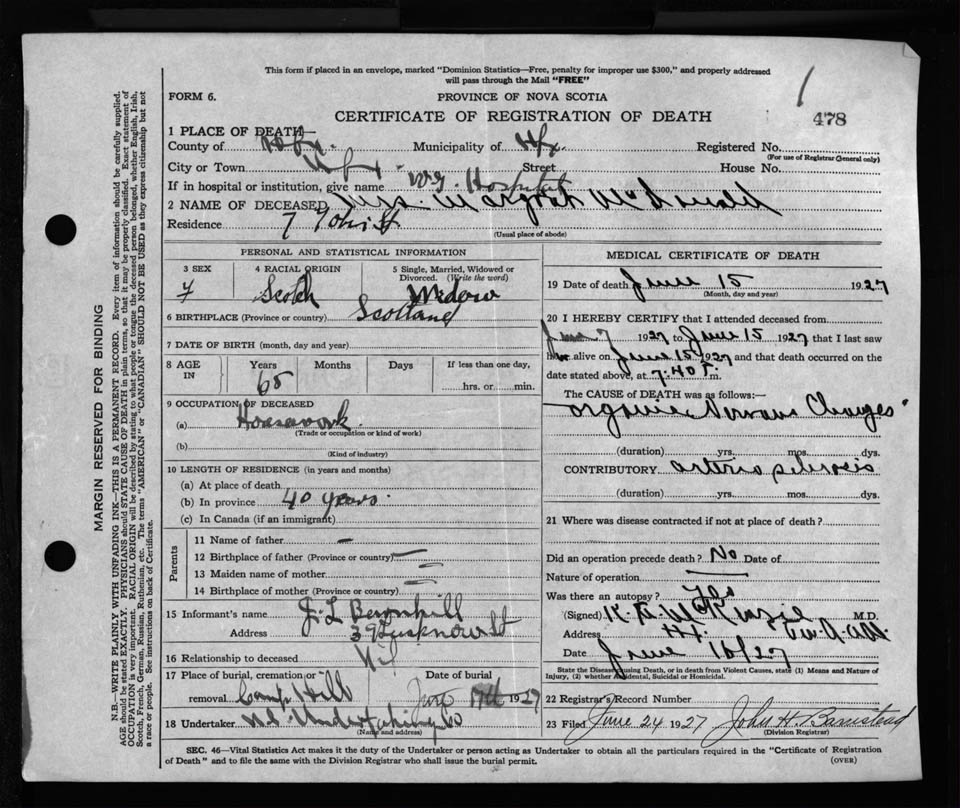 This form if placed in an envelope, marked "Dominion Statistics—Free, penalty for improper use $300," and properly addressed
will pass through the Mail "FREE"
FORM 6.
PROVINCE OF NOVA SCOTIA
CERTIFICATE OF REGISTRATION OF DEATH
478
1 PLACE OF DEATH—
County of Hfx. Municipality of Hfx. Registered No.
(For use of Registrar General only)
City or Town Hfx Street House No.
If in hospital or institution, give name V.G. Hospital
2 NAME OF DECEASED Mrs. Margret McDonald
Residence 7 St
(Usual place of abode)
PERSONAL AND STATISTICAL INFORMATION
3 SEX F
4 RACIAL ORIGIN Scotch
5 Single, Married, Widowed or Divorced. (Write the word) Widow
6 BIRTHPLACE (Province or country) Scotland
7 DATE OF BIRTH (month, day and year)
8 AGE IN Years Months Days If less than one day,
65 hrs. or min.
9 OCCUPATION OF DECEASED
(a) Housework
(Trade or occupation or kind of work)
(b)
(Kind of industry)
10 LENGTH OF RESIDENCE (in years and months)
(a) At place of death
(b) In province 40 years
(c) In Canada (if an immigrant)
Parents
11 Name of father —
12 Birthplace of father (Province or country) —
13 Maiden name of mother
14 Birthplace of mother (Province or country)
15 Informant's name J. L Barnhill
Address 39 Lucknow St
16 Relationship to deceased Nil
17 Place of burial, cremation or removal Camp Hill
Date of burial June 17th 1927
18 Undertaker N.S. Undertaking Co
(Name and address)
MEDICAL CERTIFICATE OF DEATH
19 Date of death June 15 1927
(Month, day and year)
20 I HEREBY CERTIFY that I attended deceased from
June 7 1927 to June 15 1927 that I last saw
her alive on June 15 1927 and that death occurred on the
date stated above, at 7:40 P. m.
The CAUSE of DEATH was as follows:—
Organic Nervous Changes
(duration) yrs. mos. dys.
CONTRIBUTORY arterio sclerosis
(duration) yrs. mos. dys.
21 Where was disease contracted if not at place of death?
Did an operation precede death? No Date of
Nature of operation
Was there an autopsy? Yes
(Signed) K. A. McKenzie M.D.
Address Hfx.
Date June 16/27
State the Disease causing Death, or in death from Violent Causes, state (1) Means and Nature of
Injury, (2) whether Accidental, Suicidal or Homicidal.
22 Registrar's Record Number
23 Filed June 24 1927 John H. Barnstead
(Division Registrar)
SEC. 46—Vital Statistics Act makes it the duty of the Undertaker or person acting as Undertaker to obtain all the particulars required in the "Certificate of Registration
of Death" and to file the same with the Division Registrar who shall issue the burial permit.
(OVER)
MARGIN RESERVED FOR BINDING
N.B.—WRITE PLAINLY WITH UNFADING INK—THIS IS A PERMANENT RECORD. Every item of information should be carefully supplied.
AGE should be stated EXACTLY. PHYSICIANS should STATE CAUSE OF DEATH in plain terms, so that it may be properly classified. Exact statement of
OCCUPATION is very important. RACIAL ORIGIN will be described by stating to what people or tongue the deceased person belonged, whether English, Irish,
Scotch, French, German, Russian, Ruthenian, etc. The terms "AMERICAN" or "CANADIAN" SHOULD NOT BE USED as they express citizenship but not
a race or people. See instructions on back of Certificate.